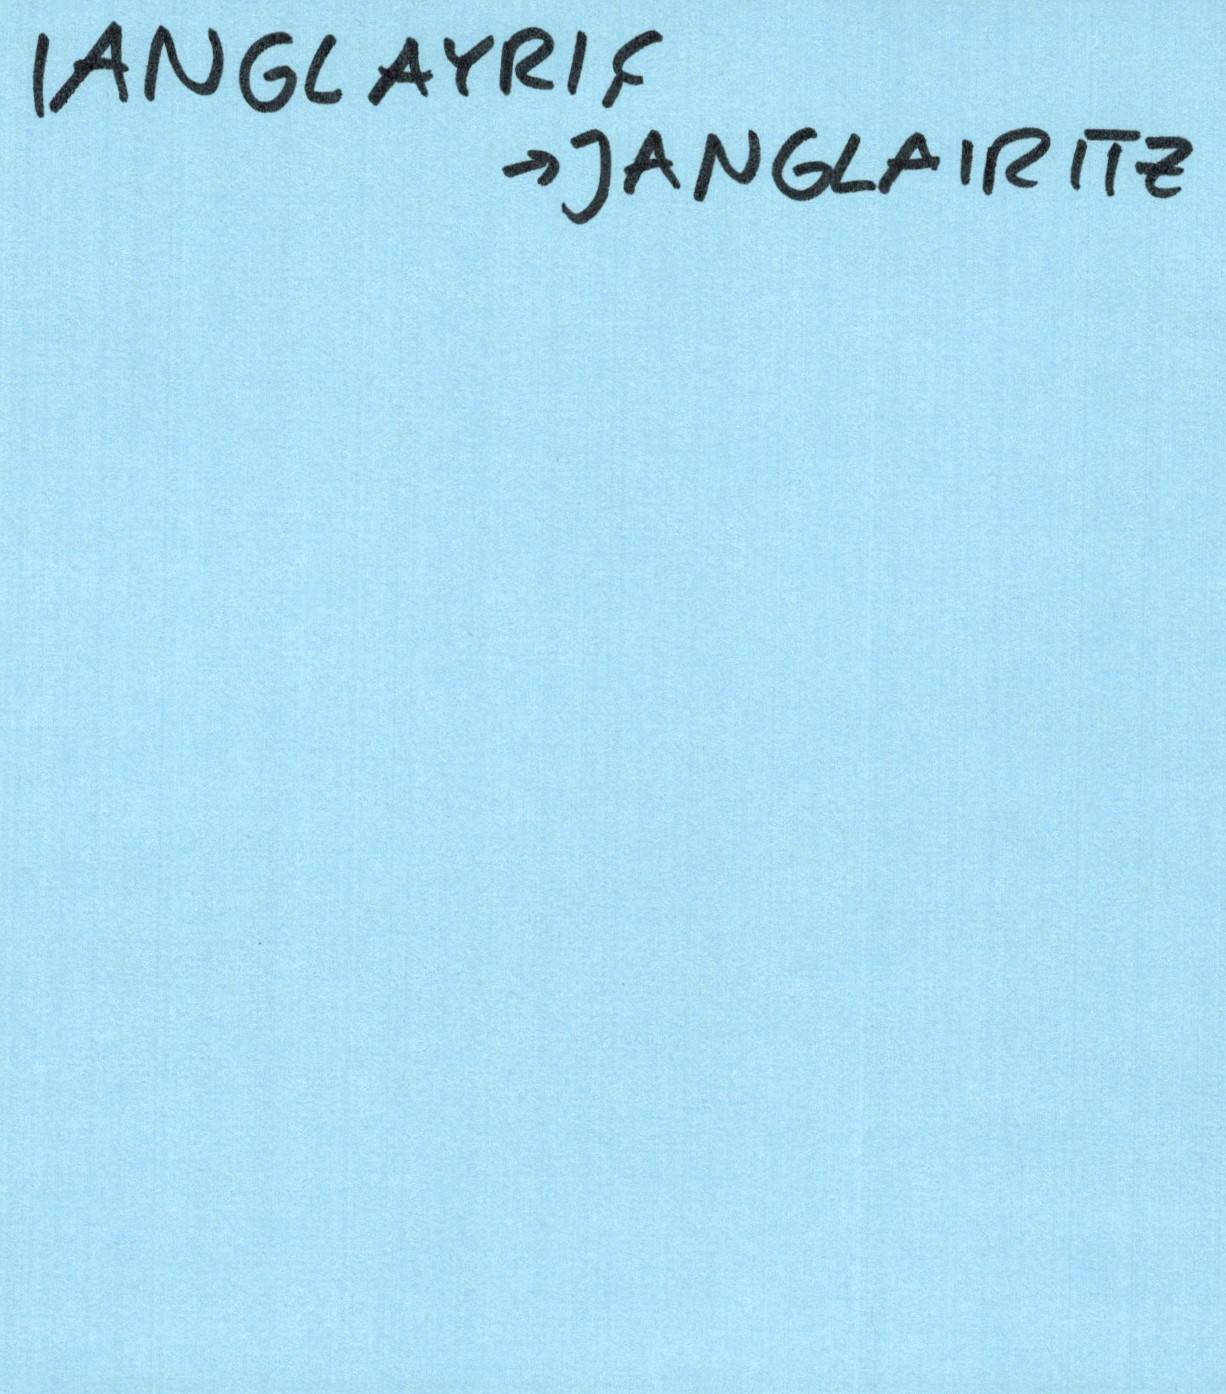 IANGLAYRIF
→JANGLAIRITZ